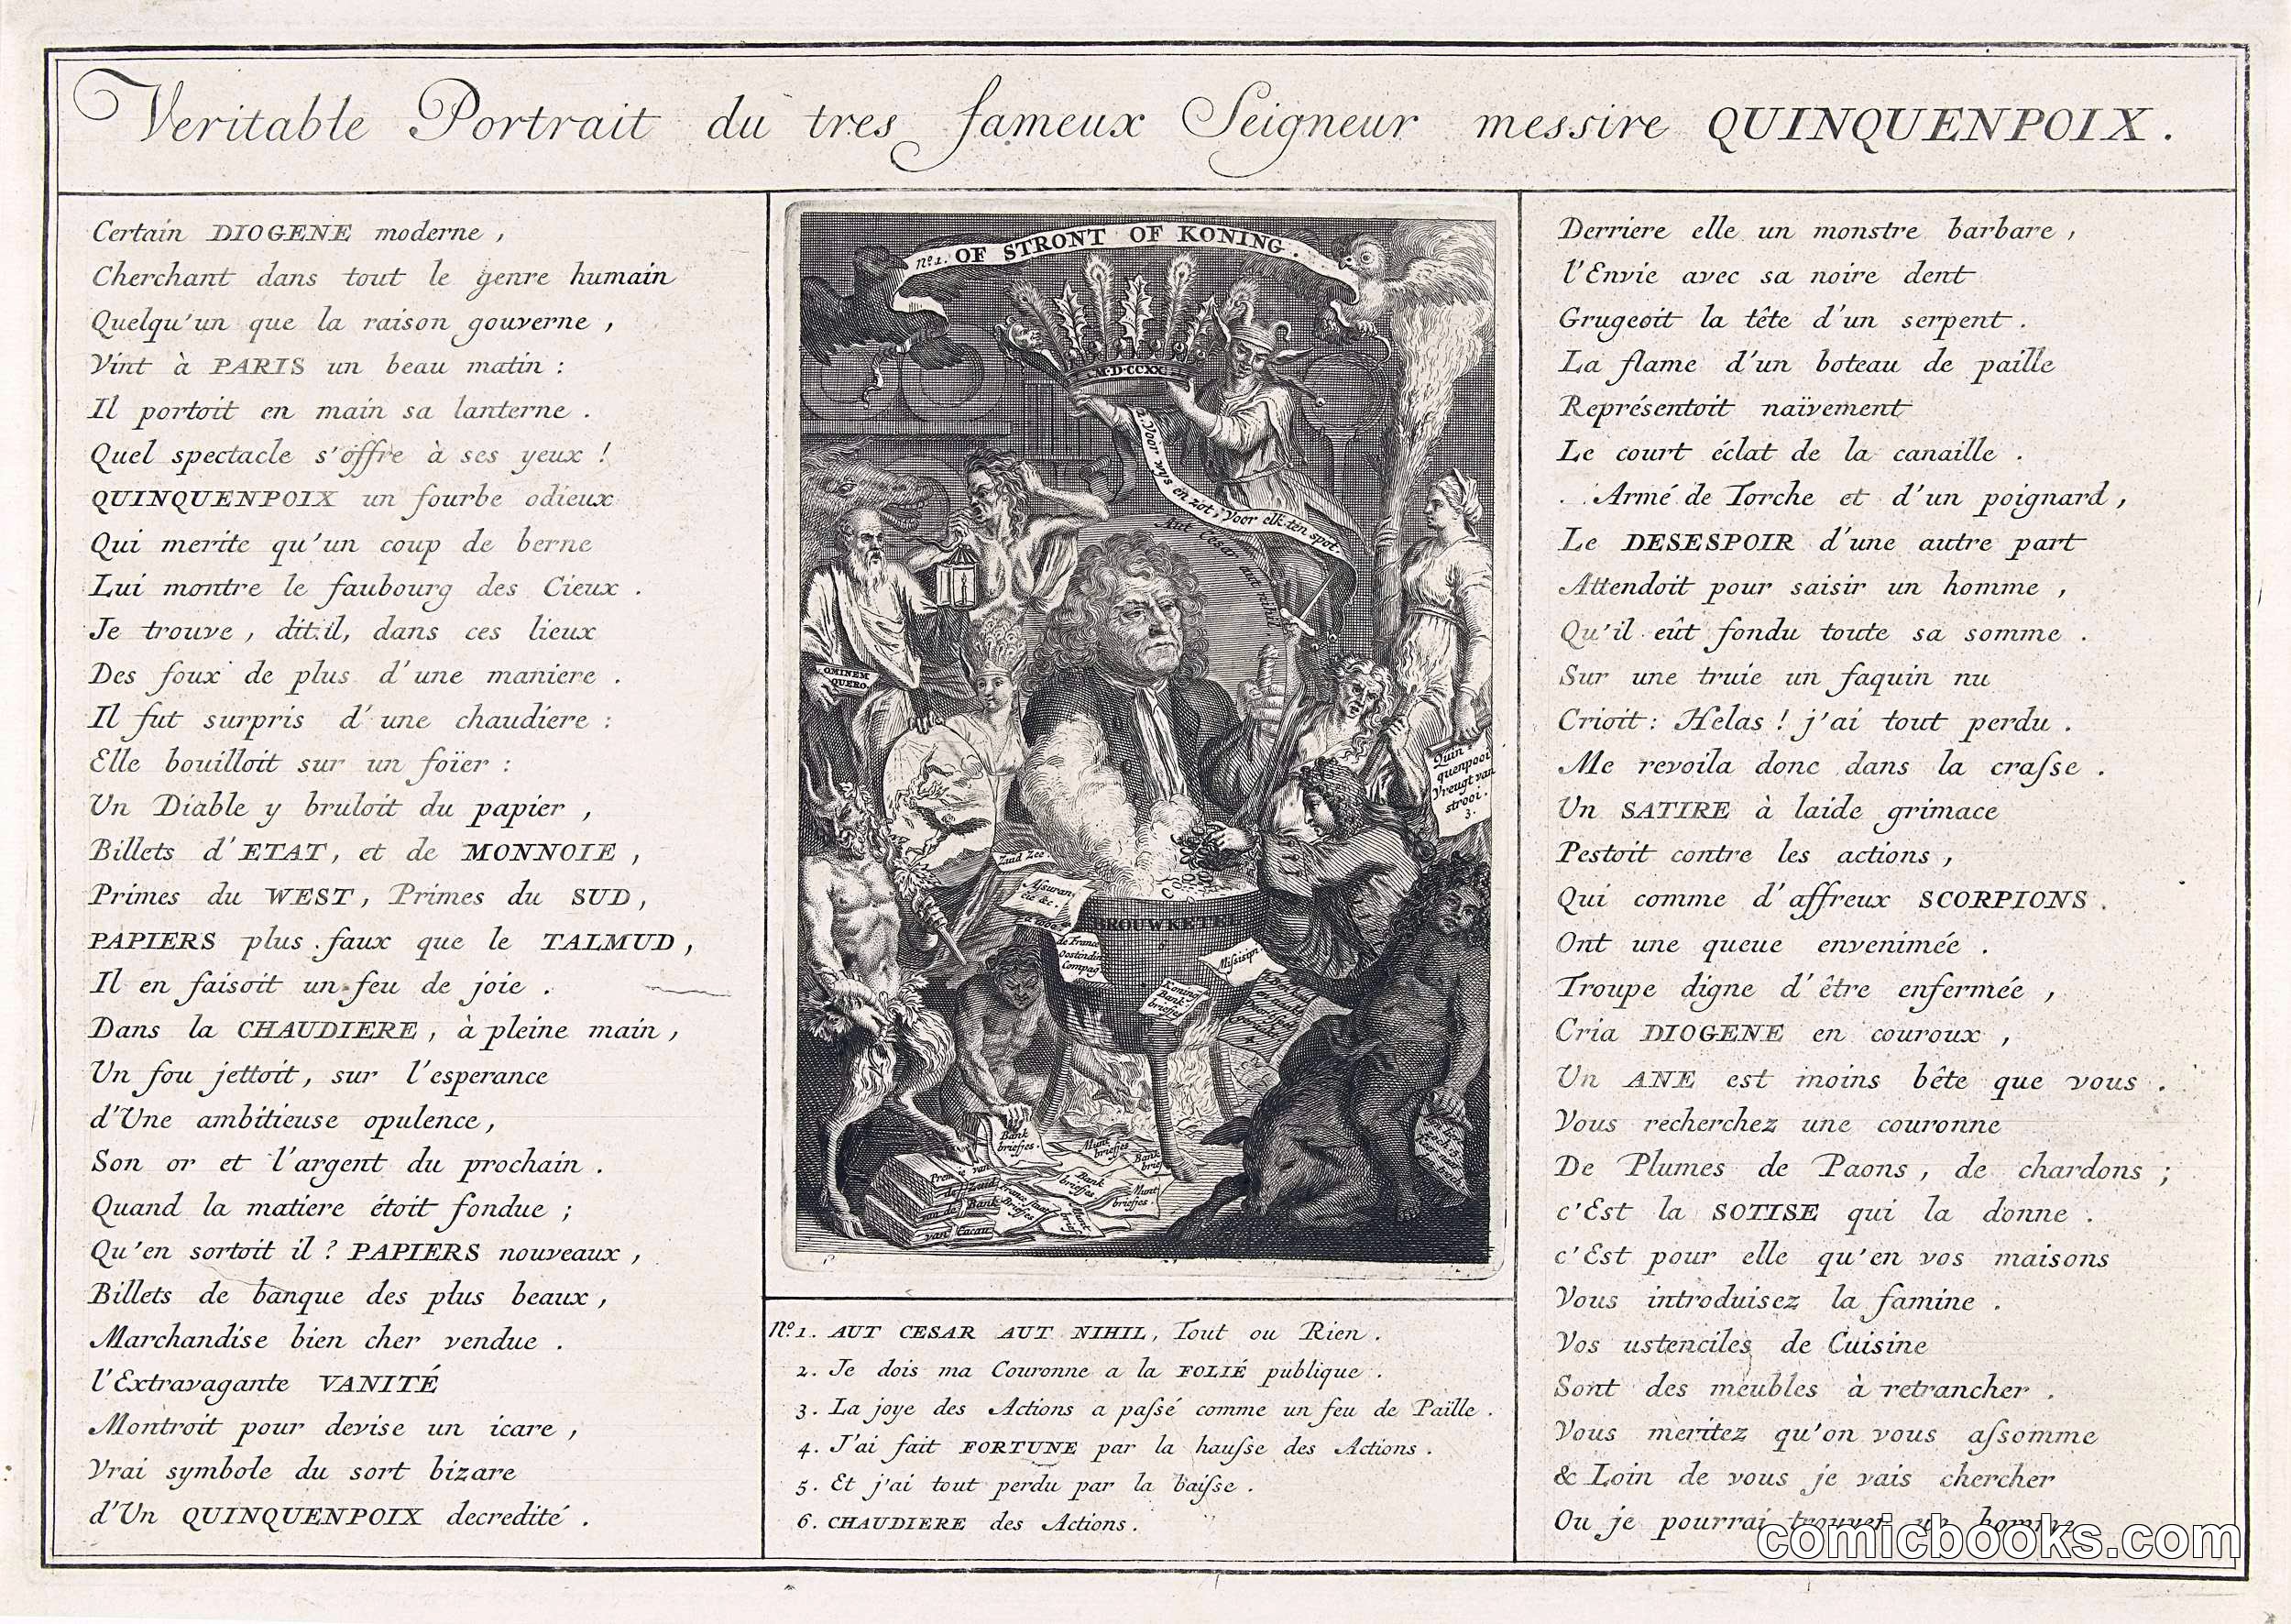 Veritable Portrait du tres fameux Seigneur messire QUINQUENPOIX.
Certain DIOGENE moderne,
Cherchant dans tout le genre humain
Quelqu'un que la raison gouverne,
Vint à PARIS un beau matin:
Il portoit en main sa lanterne.
Quel spectacle s'offre à ses yeux!
QUINQUENPOIX un fourbe odieux
Qui merite qu'un coup de berne
Lui montre le faubourg des Cieux.
Je trouve, dit.il, dans ces lieux
Des foux de plus d'une maniere.
Il fut surpris d'une chaudiere:
Elle bouilloit sur un foïer:
Un Diable y bruloit du papier,
Billets d'ETAT, et de MONNOIE,
Primes du WEST, Primes du SUD,
PAPIERS plus faux que le TALMUD,
Il en faisoit un feu de joie.
Dans la CHAUDIERE, à pleine main,
Un fou jettoit, sur l'esperance
d'Une ambitieuse opulence,
Son or et l'argent du prochain.
Quand la matiere étoit fondue;
Qu'en sortoit il? PAPIERS nouveaux,
Billets de banque des plus beaux,
Marchandise bien cher vendue.
l'Extravagante VANITÉ
Montroit pour devise un icare,
Vrai symbole du sort bizare
d'Un QUINQUENPOIX decredité.
No. 1. OF STRONT OF KONING.
M·D·CCXX
2. Voor wys en zot, Voor elk ten spot.
Aut Cesar aut nihil.
OMINEM
QUERO.
Quin
quenpooi
Vreugt van
strooi.
3.
Zuid Zee
Assuran
cie &c.
BROUWKETEL
6
de France
Oostendise
Compag
Missisipi
Koning
Bank
briefjes
Bank
briefjes.
Munt
briefjes
Bank
brief
Premie van
de Zuid
van de Bank
van Cacau
France
Briefjes
Bank
briefjes
Munt
briefjes.
No. 1. AUT CESAR AUT NIHIL, Tout ou Rien.
2. Je dois ma Couronne a la FOLIÉ publique.
3. La joye des Actions a passé comme un feu de Paille.
4. J'ai fait FORTUNE par la hausse des Actions.
5. Et j'ai tout perdu par la baisse.
6. CHAUDIERE des Actions.
Derriere elle un monstre barbare,
l'Envie avec sa noire dent
Grugeoit la tête d'un serpent.
La flame d'un boteau de paille
Représentoit naïvement
Le court éclat de la canaille.
Armé de Torche et d'un poignard,
Le DESESPOIR d'une autre part
Attendoit pour saisir un homme,
Qu'il eût fondu toute sa somme.
Sur une truie un faquin nu
Crioit: Helas! j'ai tout perdu.
Me revoila donc dans la crasse.
Un SATIRE à laide grimace
Pestoit contre les actions,
Qui comme d'affreux SCORPIONS.
Ont une queue envenimée.
Troupe digne d'être enfermée,
Cria DIOGENE en couroux,
Un ANE est moins bête que vous.
Vous recherchez une couronne
De Plumes de Paons, de chardons;
c'Est la SOTISE qui la donne.
c'Est pour elle qu'en vos maisons
Vous introduisez la famine.
Vos ustenciles de Cuisine
Sont des meubles à retrancher.
Vous meritez qu'on vous assomme
& Loin de vous je vais chercher
Ou je pourrai trouver un homme
comicbooks.com